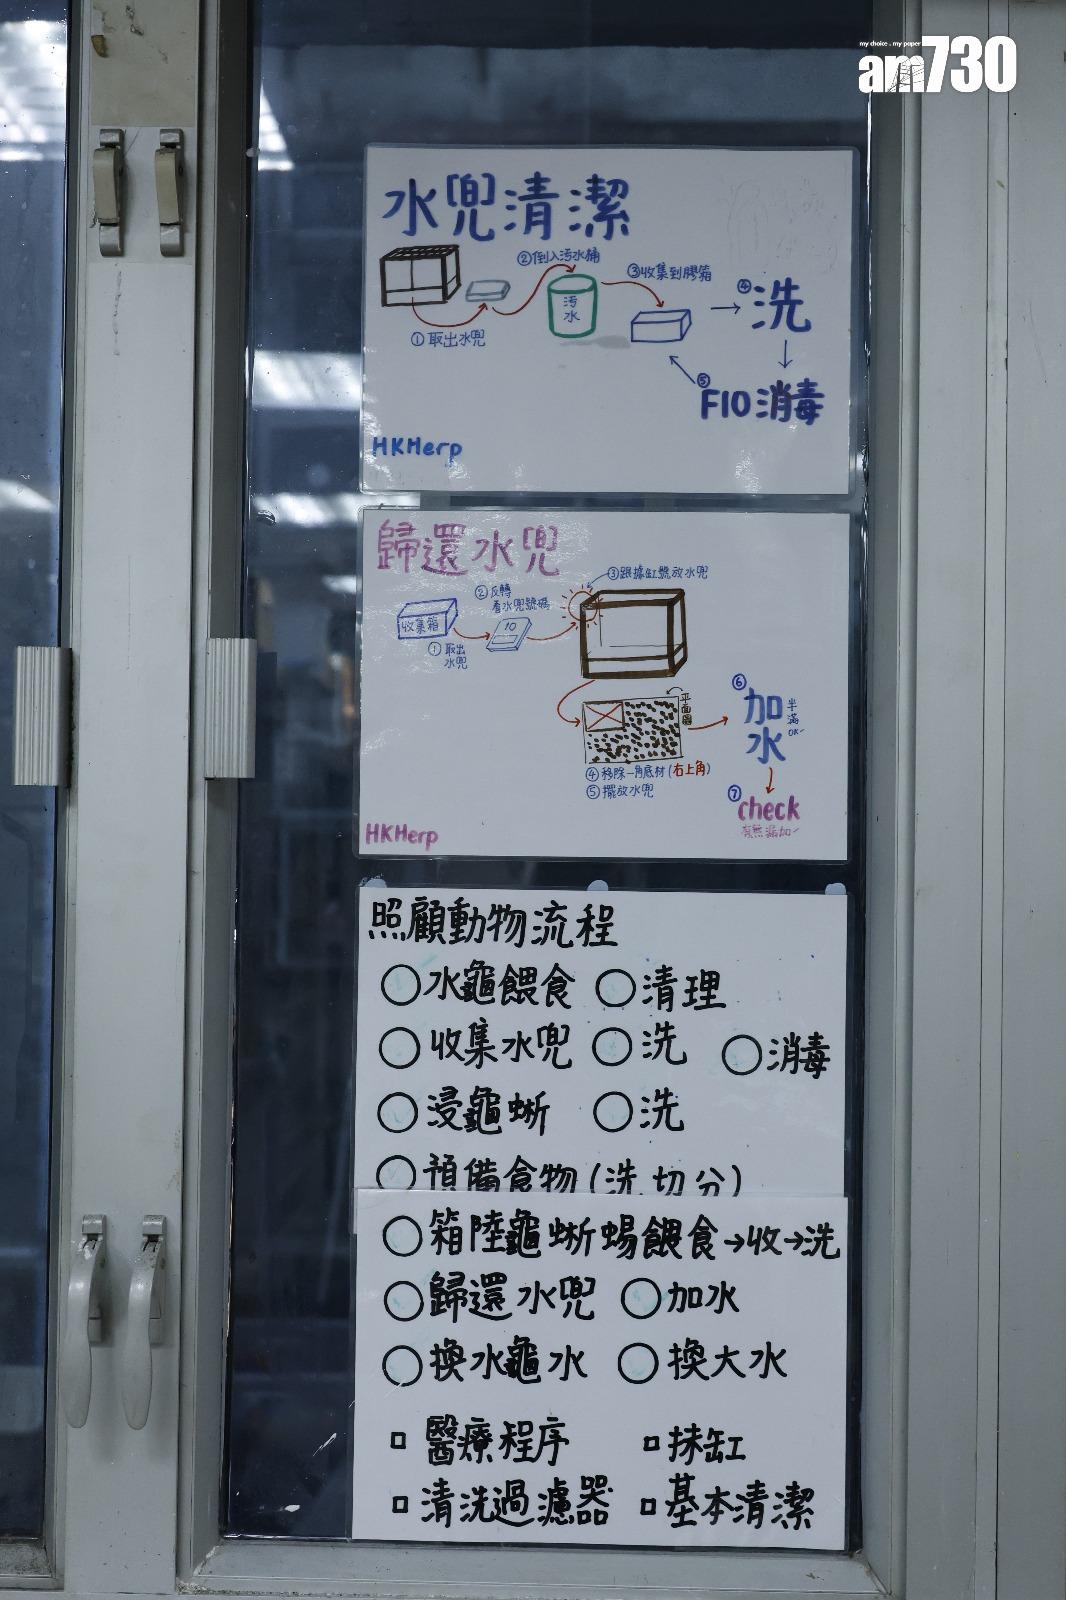 my choice . my paper
am730
水兜清潔
②倒入污水桶
③收集到膠箱
④洗
污水
①取出水兜
⑤
F10消毒
HKHerp
歸還水兜
③跟據缸號放水兜
②反轉
看水兜號碼
收集箱
10
①取出
水兜
平面圖
⑥
加水
半滿OK
④移除一角底材(右上角)
⑤擺放水兜
⑦check
有無漏加
HKHerp
照顧動物流程
水龜餵食 清理
收集水兜 洗 消毒
浸龜蜥 洗
預備食物(洗,切,分)
箱陸龜蜥蜴餵食→收→洗
歸還水兜 加水
換水龜水 換大水
醫療程序 抹缸
清洗過濾器 基本清潔